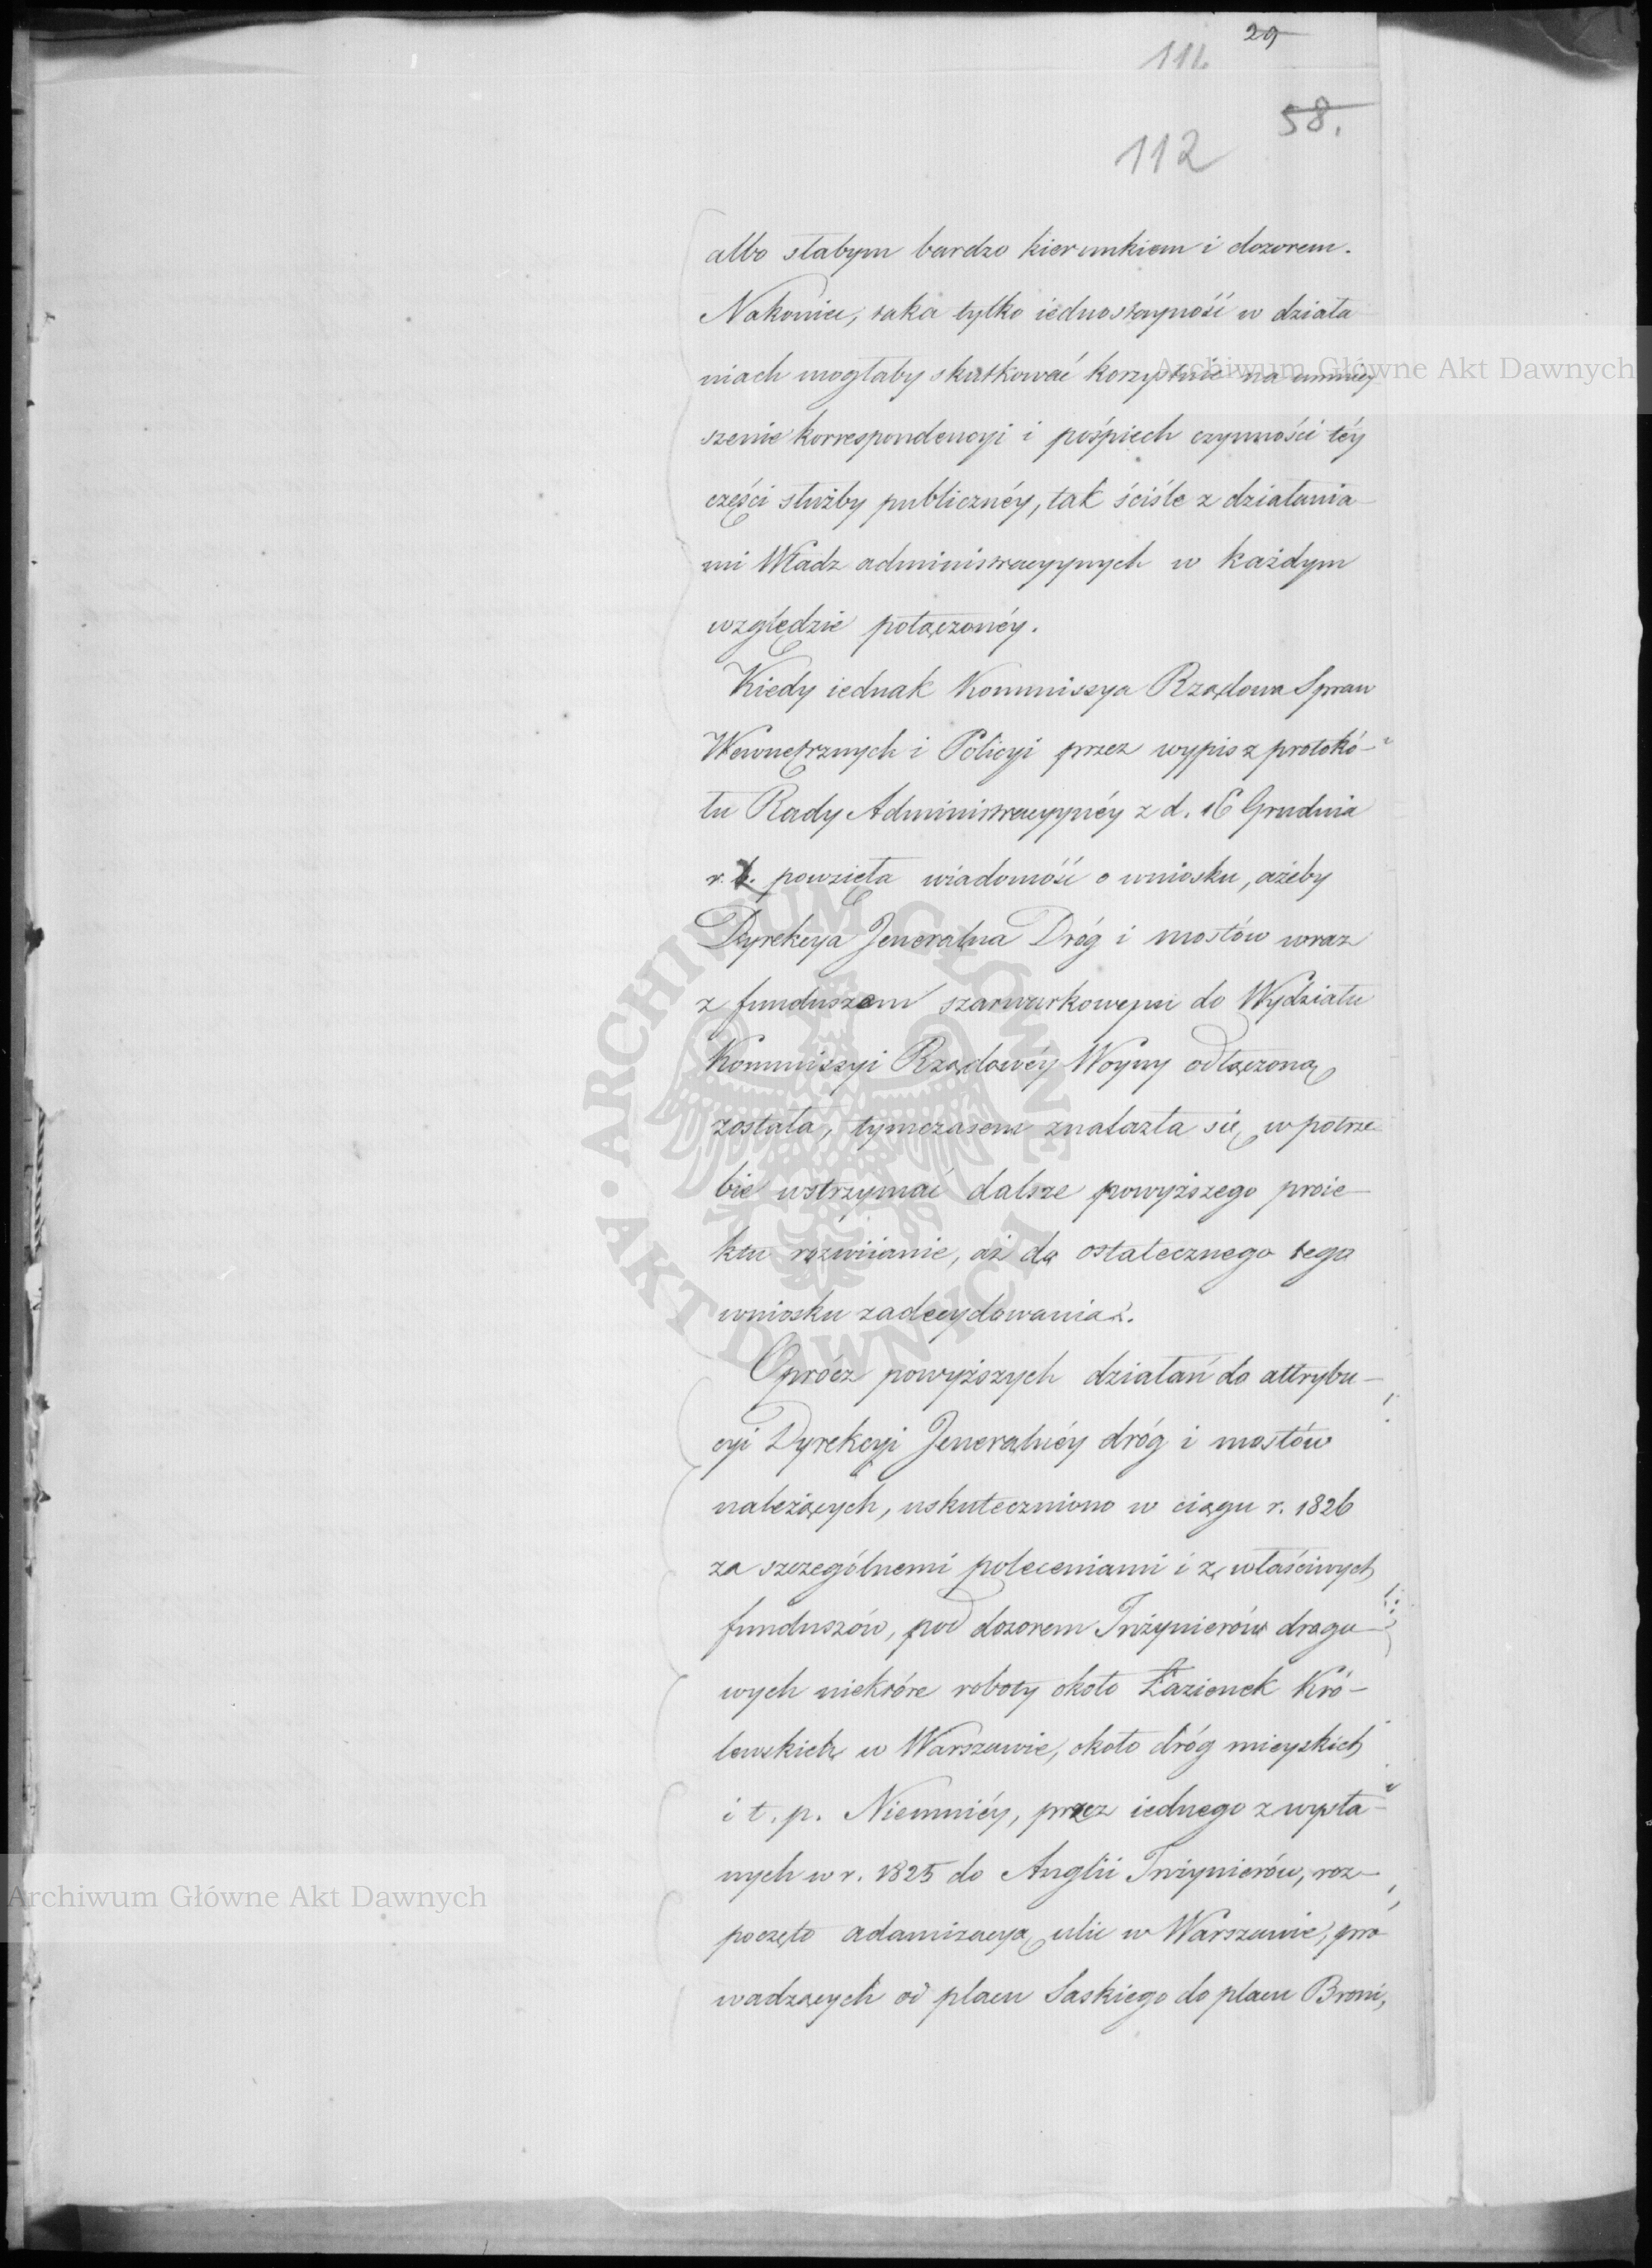 29
111
58.
112
albo słabym bardzo kierunkiem i dozorem.
Nakoniec, taka tylko iednostayność w działa
niach mogłaby skutkować korzystnie na zmniey
szenie korrespondencyi i pośpiech czynności téy
części służby publicznéy, tak ściśle z działania-
mi Władz administracyynych w każdym
względzie połączonéy.
Kiedy iednak Kommissya Rządowa Spraw
Wewnętrznych i Policyi przez wypis z protokó-
łu Rady Administracyynéy z d. 16 Grudnia
r. b. powzięła wiadomość o wniosku, ażeby
Dyrekcya Jeneralna Dróg i mostów wraz
z funduszem szarwarkowym do Wydziału
Kommissyi Rządowéy Woyny odłączoną
została, tymczasem znalazła się w potrze-
bie wstrzymać dalsze powyższego proie-
ktu rozwiianie, aż do ostatecznego tego
wniosku zadecydowania.
Oprócz powyższych działań do attrybu-
cyi Dyrekcyi Jeneralnéy dróg i mostów
należących, uskuteczniono w ciągu r. 1826
za szczególnemi poleceniami i z właściwych
funduszów, pod dozorem Inżynierów drogo-
wych niektóre roboty około Łazienek Kró-
lewskich w Warszawie, około dróg mieyskich
i t. p. Niemniéy, przez iednego z wysła-
nych w r. 1825 do Anglii Inżynierów, roz-
poczęto adamizacyą ulic w Warszawie, pro
wadzących od placu Saskiego do placu Broni,
Archiwum Główne Akt Dawnych
ARCHIWUM GŁÓWNE · AKT DAWNYCH
Archiwum Główne Akt Dawnych